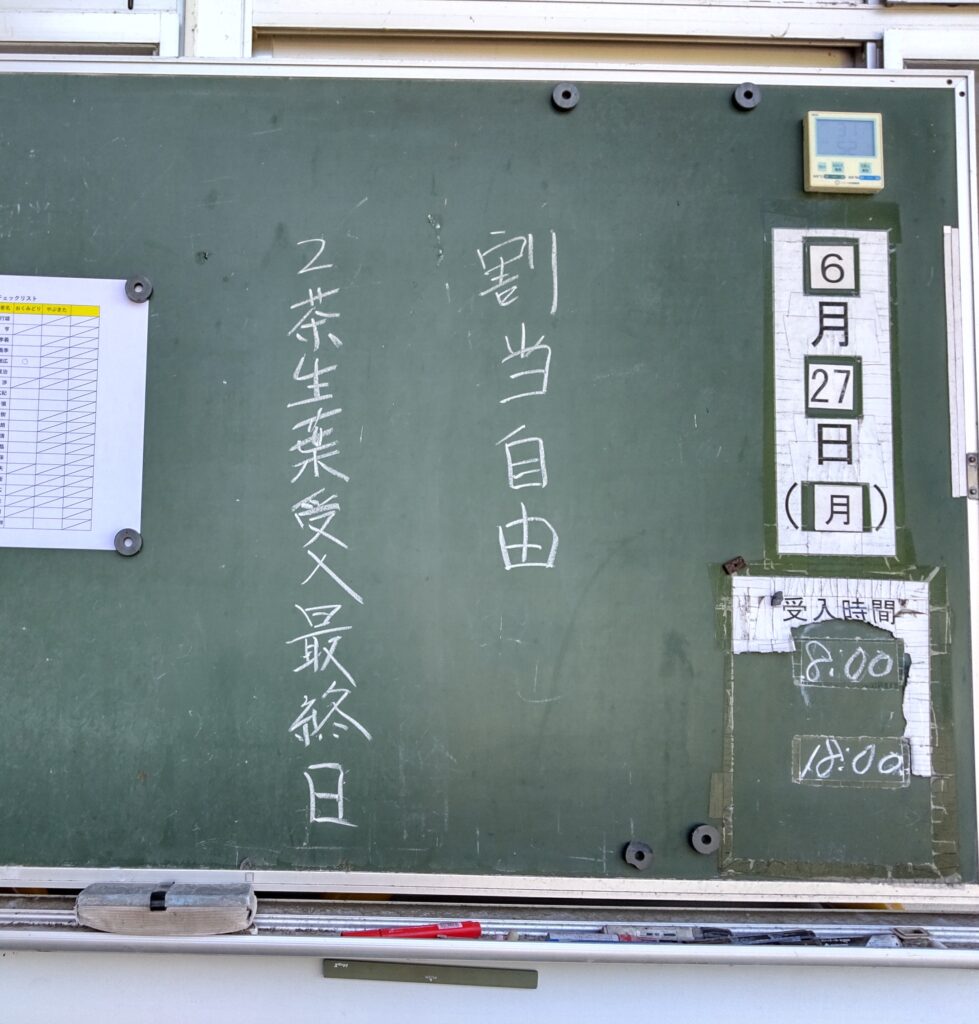 6
月
27
日
(月)
受入時間
8:00
18:00
割当自由
2茶生葉受入最終日
チェックリスト
おくみどり やぶきた